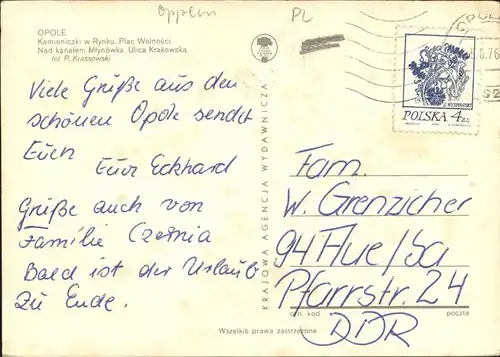 Oppeln
PL
OPOLE
Kamieniczki w Rynku. Plac Wolności.
Nad kanałem Młynówka. Ulica Krakowska.
fot P. Krassowski
OPOLE
6.76
POLSKA 4 ZŁ
Viele Grüße aus den
schönen Opole sendet
Euch
Euer Eckhard
Grüße auch von
Familie Czernia
Bald ist der Urlaub
zu Ende.
KRAJOWA AGENCJA WYDAWNICZA
Fam.
W. Grenzicher
94 Aue/Sa
Pfarrstr. 24
DDR
ozn. kod
poczta
Wszelkie prawa zastrzeżone